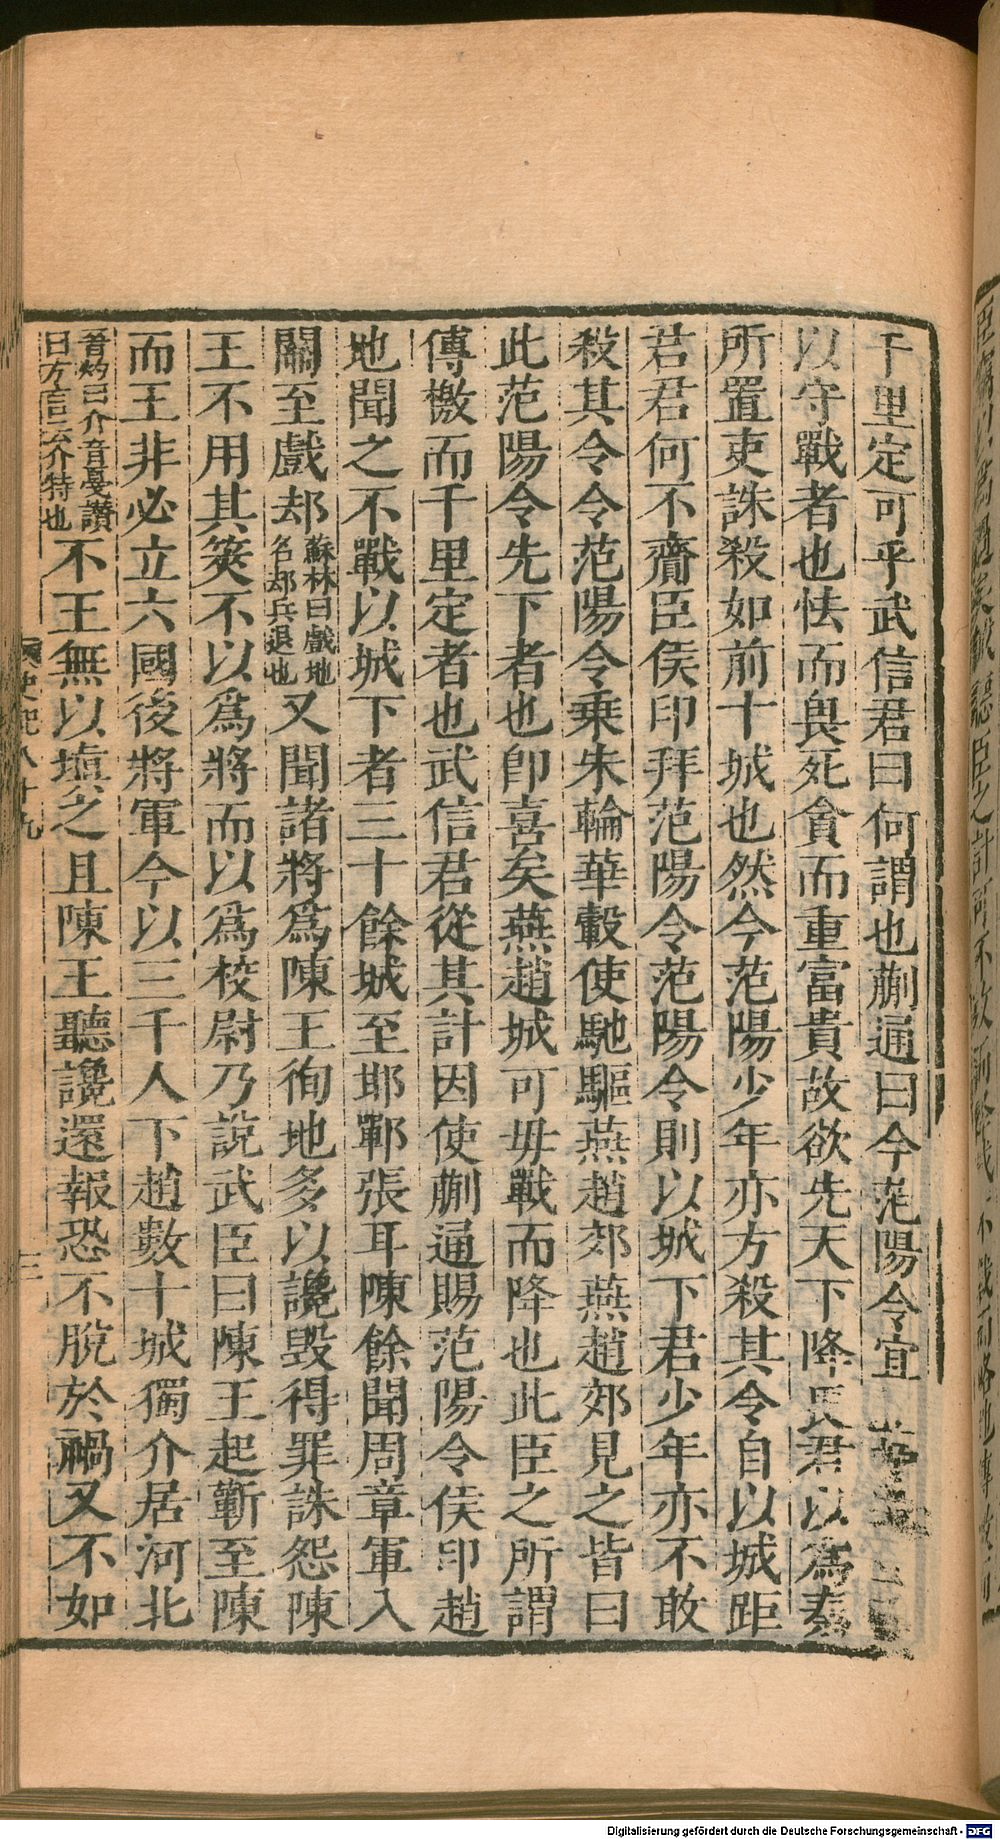 千里定可乎武信君曰何謂也蒯通曰今范陽令宜
以守戰者也怯而畏死貪而重富貴故欲先天下降畏君以爲秦
所置吏誅殺如前十城也然今范陽少年亦方殺其令自以城距
君君何不齎臣侯印拜范陽令范陽令則以城下君少年亦不敢
殺其令令范陽令乗朱輪華轂使馳驅燕趙郊燕趙郊見之皆曰
此范陽令先下者也卽喜矣燕趙城可毋戰而降也此臣之所謂
傳檄而千里定者也武信君從其計因使蒯通賜范陽令侯印趙
地聞之不戰以城下者三十餘城至邯鄲張耳陳餘聞周章軍入
關至戲却蘇林曰戲地名却兵退也又聞諸將爲陳王徇地多以讒毁得罪誅怨陳
王不用其筴不以爲將而以爲校尉乃說武臣曰陳王起蘄至陳
而王非必立六國後將軍今以三千人下趙數十城獨介居河北
晉灼曰介音戞瓚曰方言云介特也不王無以塡之且陳王聽讒還報恐不脫於禍又不如
史記八十九
三
Digitalisierung gefördert durch die Deutsche Forschungsgemeinschaft - DFG